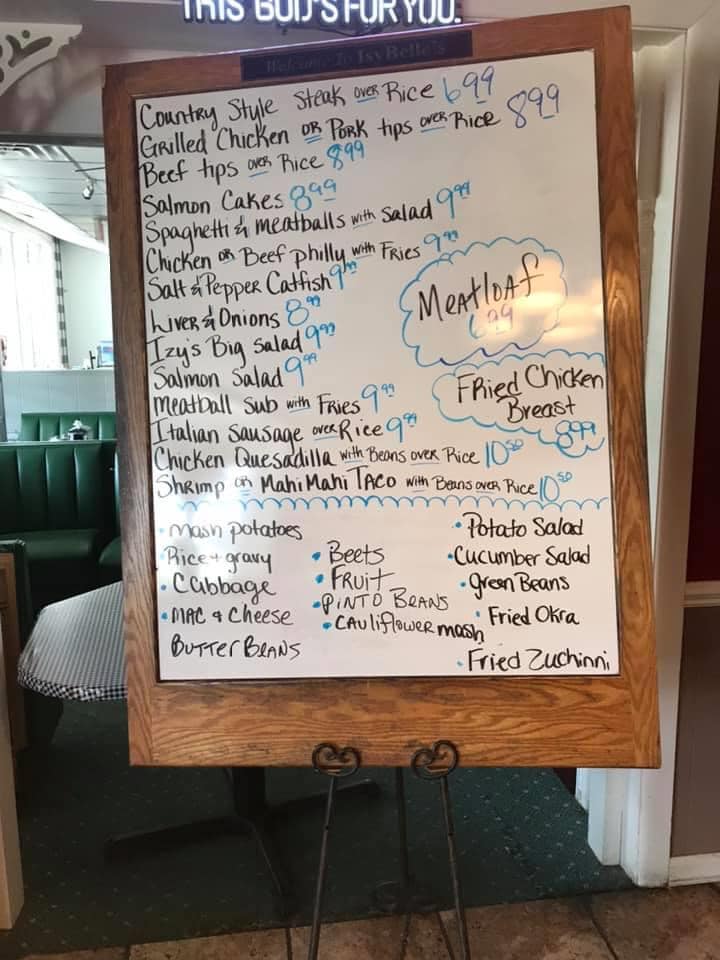 THIS BUD'S FOR YOU.
Welcome To IsyBelle's
Country Style Steak over Rice 6 99
Grilled Chicken or Pork tips over Rice 8 99
Beef tips over Rice 8 99
Salmon Cakes 8 99
Spaghetti & meatballs with Salad 9 99
Chicken or Beef philly with Fries 9 99
Salt & Pepper Catfish 9 99
Liver & Onions 8 99
Izy's Big Salad 9 99
Salmon Salad 9 99
Meatball Sub with Fries 9 99
Italian Sausage over Rice 9 99
Chicken Quesadilla with Beans over Rice 10 50
Shrimp or Mahi Mahi Taco with Beans over Rice 10 50
Meatloaf
6 99
Fried Chicken
Breast
8 99
• Mash potatoes
• Rice + gravy
• Cabbage
• Mac & Cheese
Butter Beans
• Beets
• Fruit
• Pinto Beans
• Cauliflower mash
• Potato Salad
• Cucumber Salad
• green Beans
• Fried Okra
• Fried Zuchinni